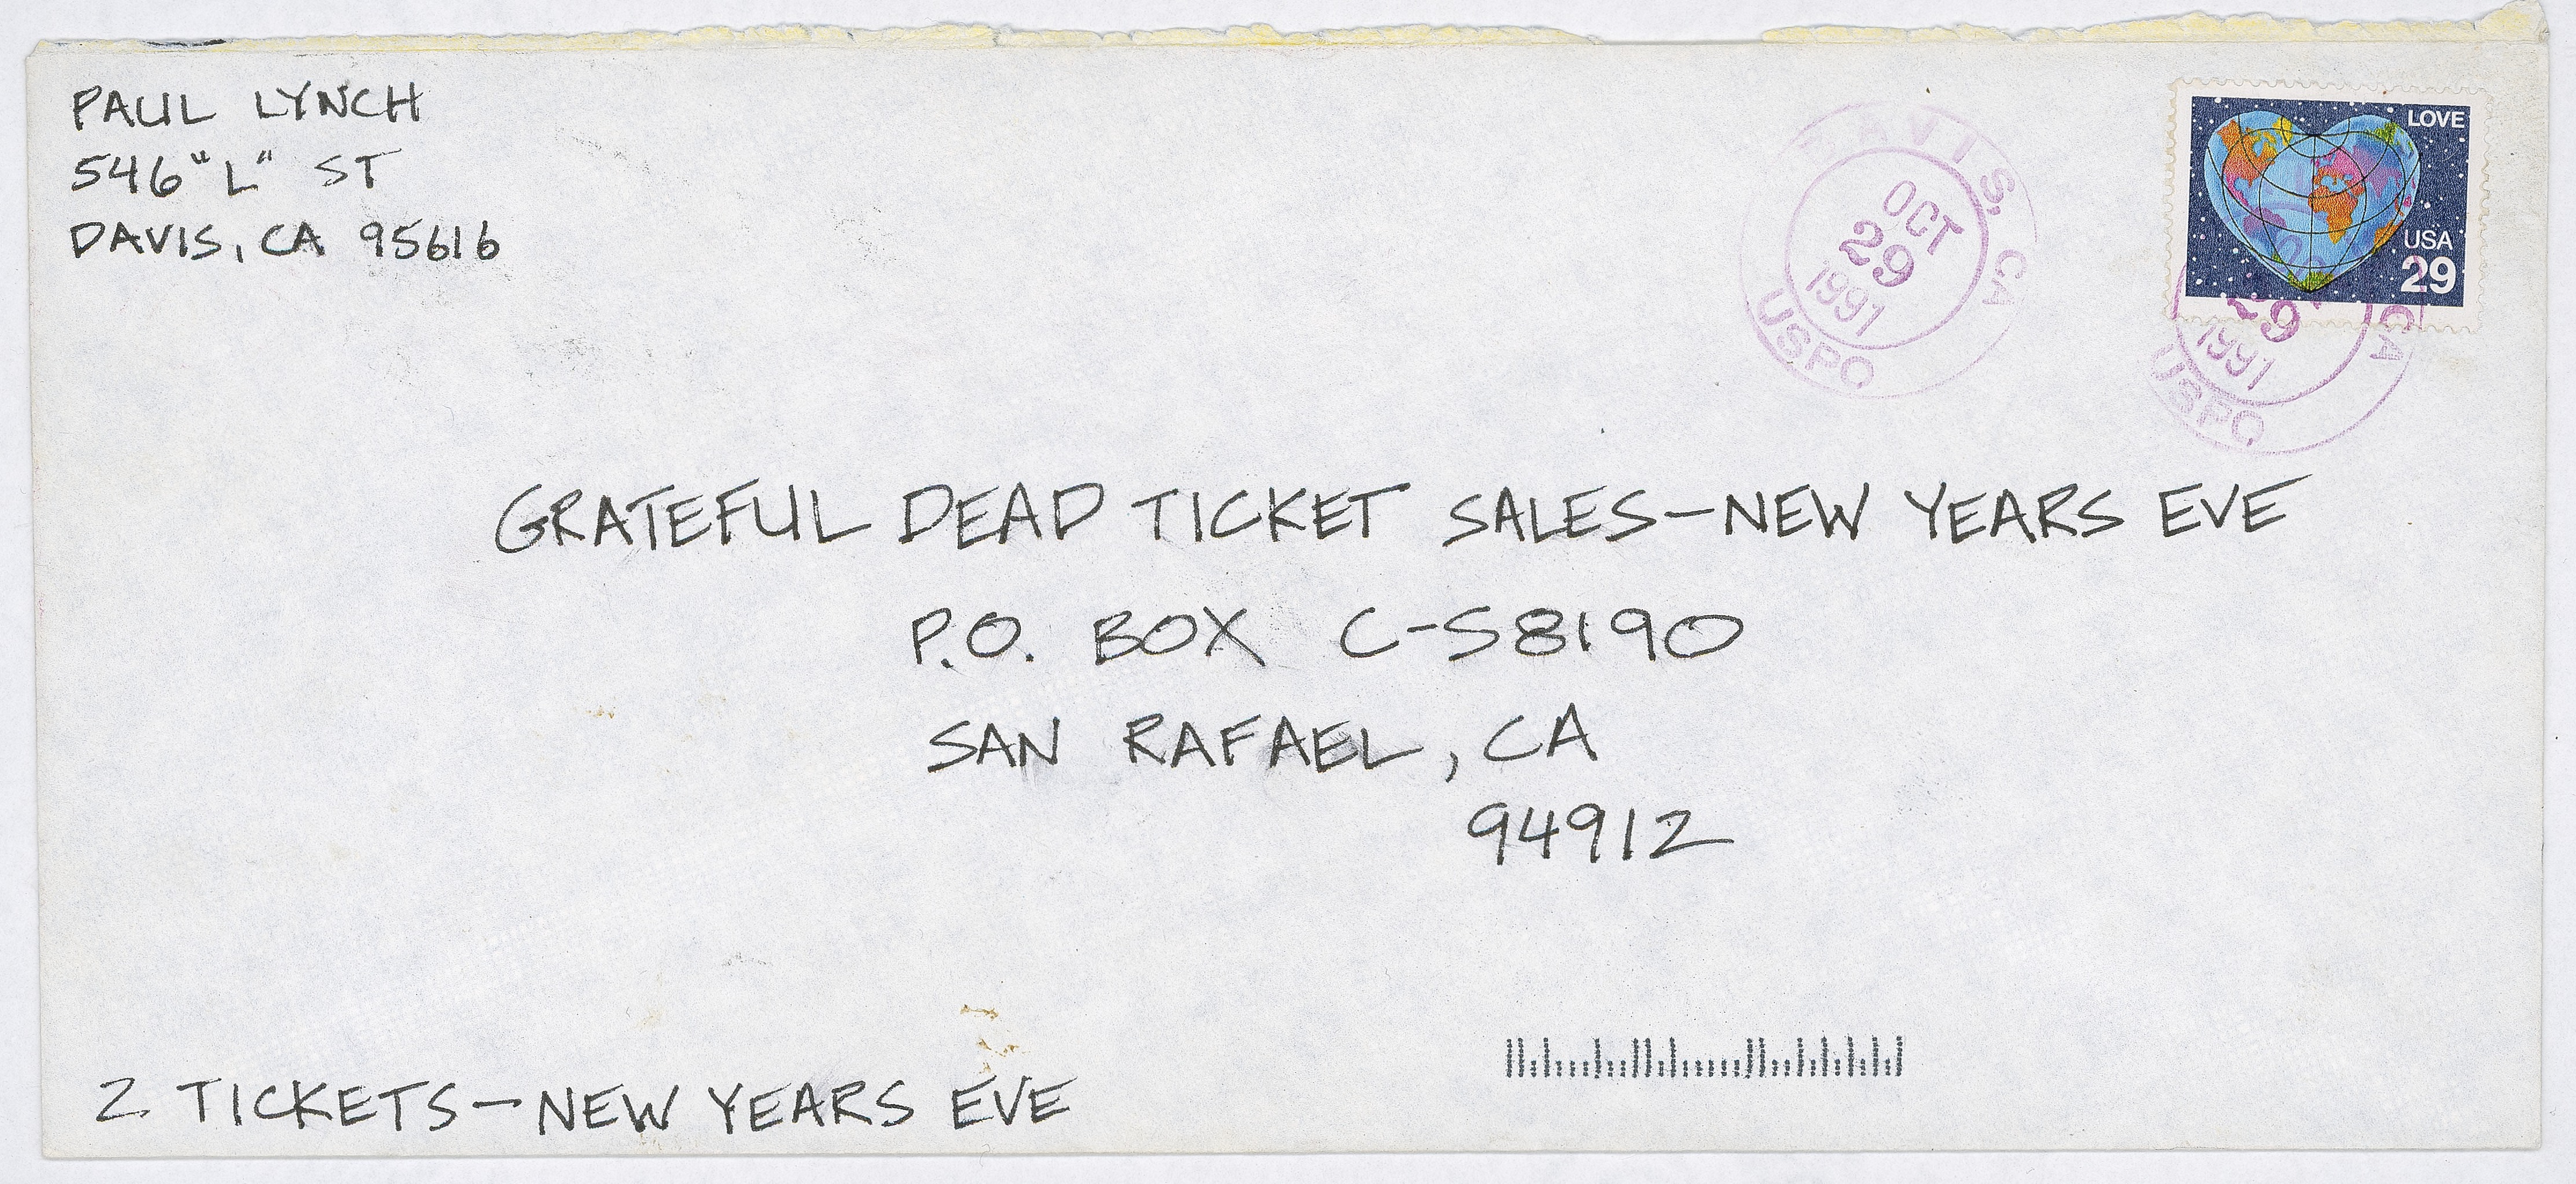 PAUL LYNCH
546 "L" ST
DAVIS, CA 95616
DAVIS, CA
OCT
29
1991
USPO
LOVE
USA
29
29
1991
CA
USPO
GRATEFUL DEAD TICKET SALES-NEW YEARS EVE
P.O. BOX C-S8190
SAN RAFAEL, CA
94912
2 TICKETS-NEW YEARS EVE